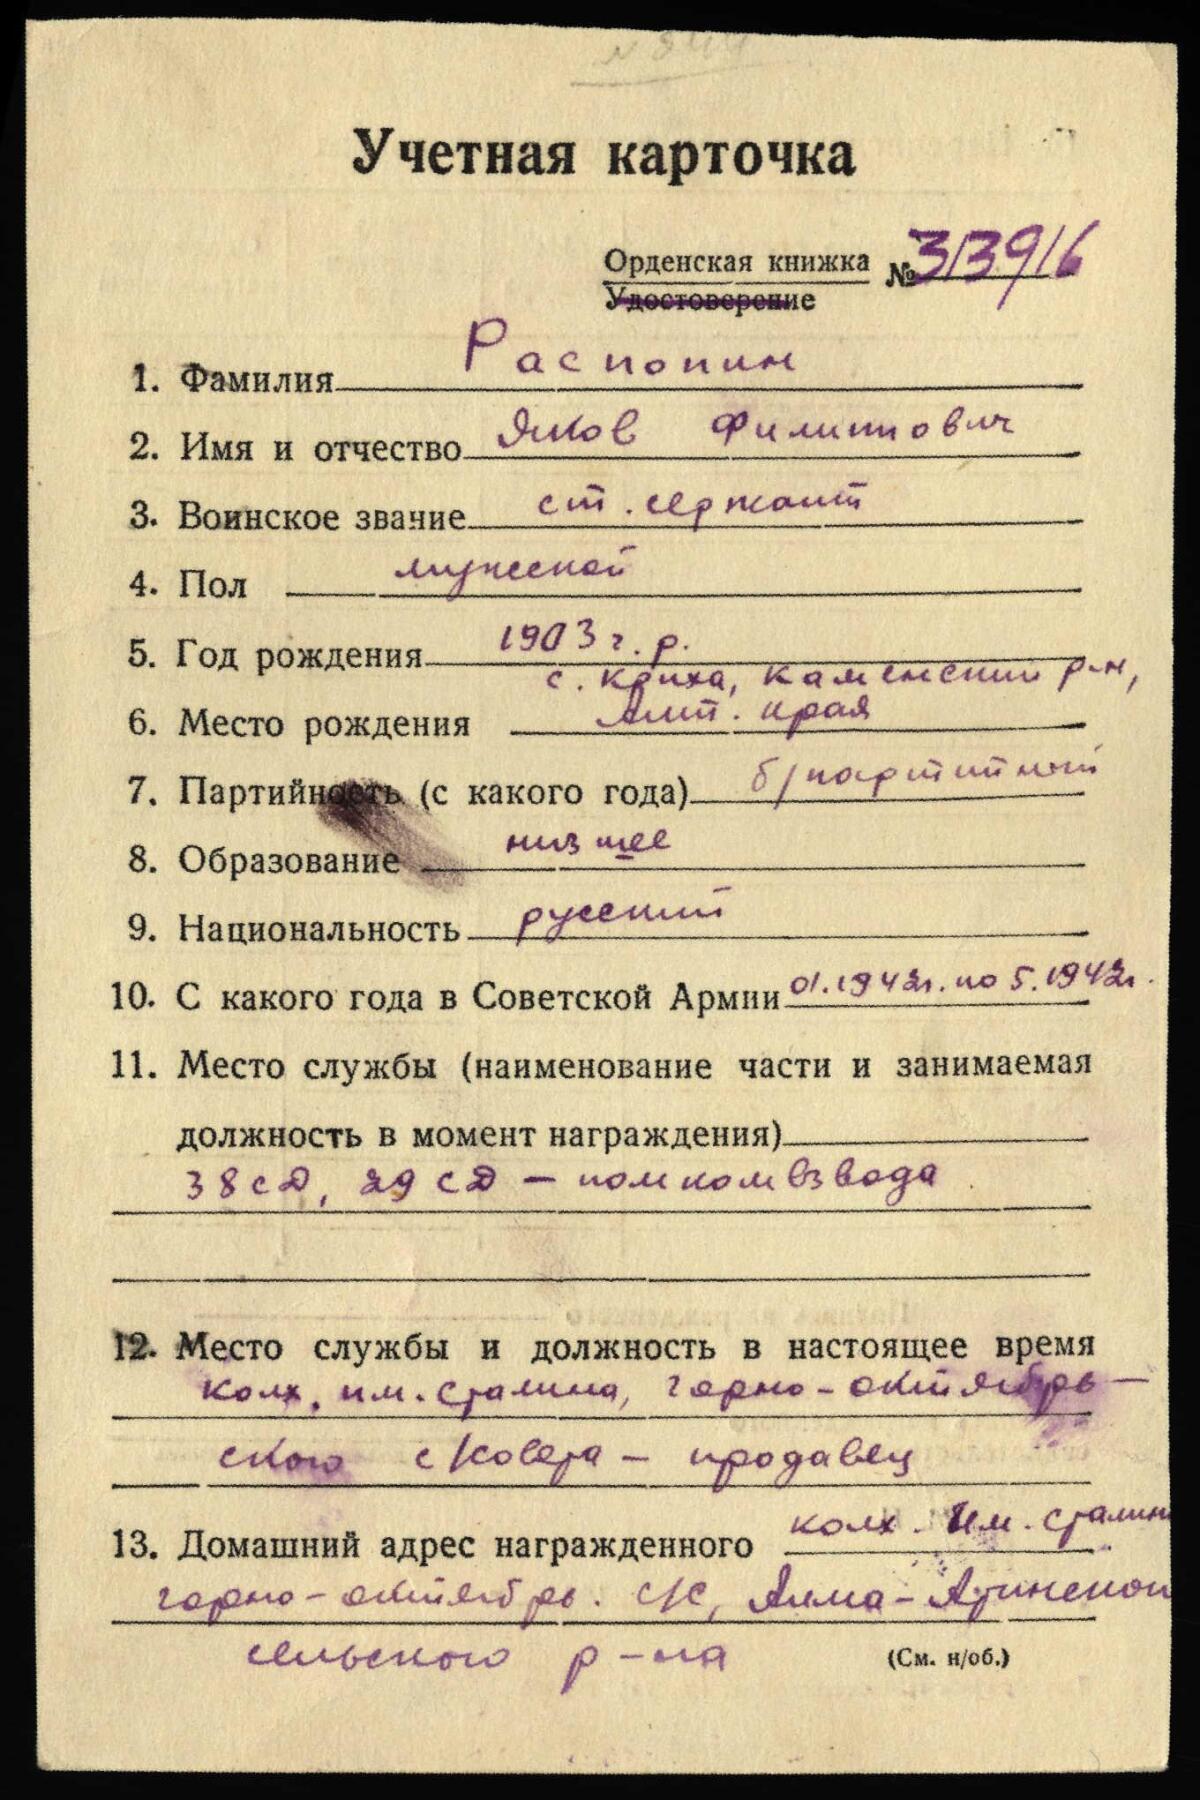 Учетная карточка
Орденская книжка № 313916
Удостоверение
1. Фамилия Распопин
2. Имя и отчество Яков Филиппович
3. Воинское звание ст. сержант
4. Пол мужской
5. Год рождения 1903 г. р.
с. Криха, Каменский р-н,
6. Место рождения Алт. края
7. Партийность (с какого года) б/партийный
8. Образование низшее
9. Национальность русский
10. С какого года в Советской Армии 01.1942г. по 5.1942г.
11. Место службы (наименование части и занимаемая
должность в момент награждения)
38 сд, 29 сд – помкомвзвода
12. Место службы и должность в настоящее время
колх. им. Сталина, горно-октябрь-
ского с/совета – продавец
13. Домашний адрес награжденного колх. им. Сталина
горно-октябрь. с/с, Алма-Атинской
сельского р-на (См. н/об.)